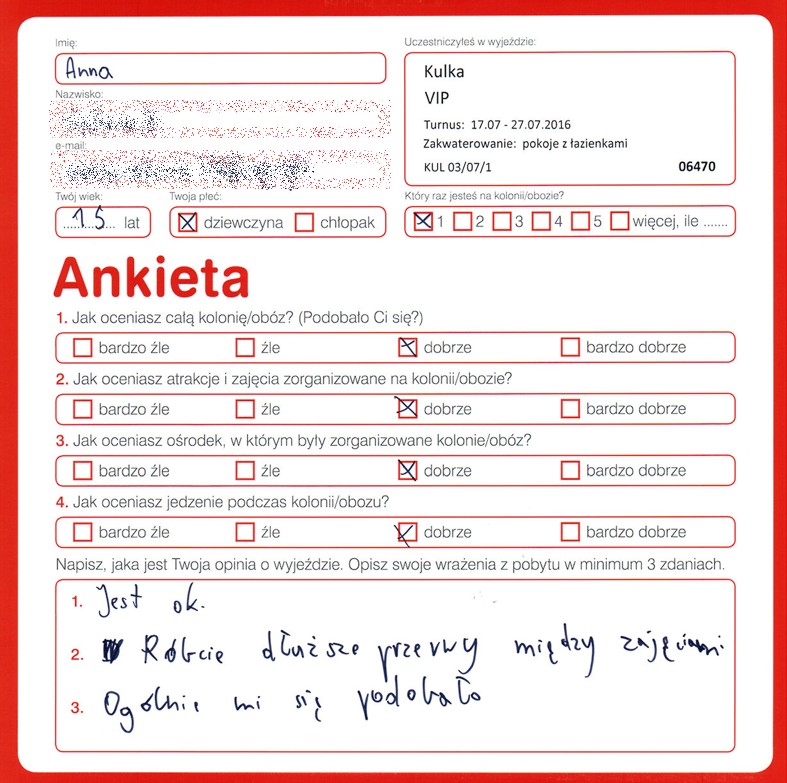 Imię:
Anna
Nazwisko:
e-mail:
Twój wiek:
15 lat
Twoja płeć:
dziewczyna chłopak
Uczestniczyłeś w wyjeździe:
Kulka
VIP
Turnus: 17.07 - 27.07.2016
Zakwaterowanie: pokoje z łazienkami
KUL 03/07/1 06470
Który raz jesteś na kolonii/obozie?
1 2 3 4 5 więcej, ile .......
Ankieta
1. Jak oceniasz całą kolonię/obóz? (Podobało Ci się?)
bardzo źle źle dobrze bardzo dobrze
2. Jak oceniasz atrakcje i zajęcia zorganizowane na kolonii/obozie?
bardzo źle źle dobrze bardzo dobrze
3. Jak oceniasz ośrodek, w którym były zorganizowane kolonie/obóz?
bardzo źle źle dobrze bardzo dobrze
4. Jak oceniasz jedzenie podczas kolonii/obozu?
bardzo źle źle dobrze bardzo dobrze
Napisz, jaka jest Twoja opinia o wyjeździe. Opisz swoje wrażenia z pobytu w minimum 3 zdaniach.
1. Jest ok.
2. Róbcie dłuższe przerwy między zajęciami
3. Ogólnie mi się podobało